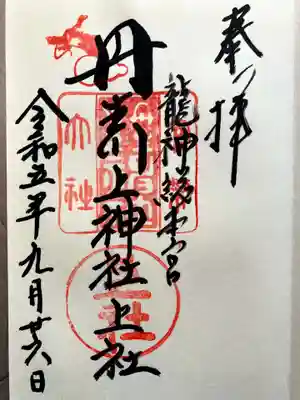 奉拝
龍神総本宮
丹生川上神社上社
令和五年九月廿六日
大社